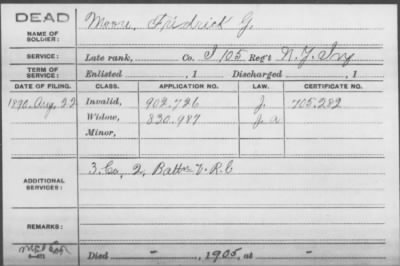 DEAD
NAME OF SOLDIER: Moore, Fredrick G.
SERVICE: Late rank, Co. I 105 Reg't N.Y. Inf
TERM OF SERVICE: Enlisted , 1 Discharged , 1
DATE OF FILING. CLASS. APPLICATION NO. LAW. CERTIFICATE NO.
1890, Aug, 22 Invalid, 902,726 J. 705,282
Widow, 830,987 J. a
Minor,
ADDITIONAL SERVICES: 3. Co, 2, Battn V. R. C
REMARKS:
Died - , 1905, at -